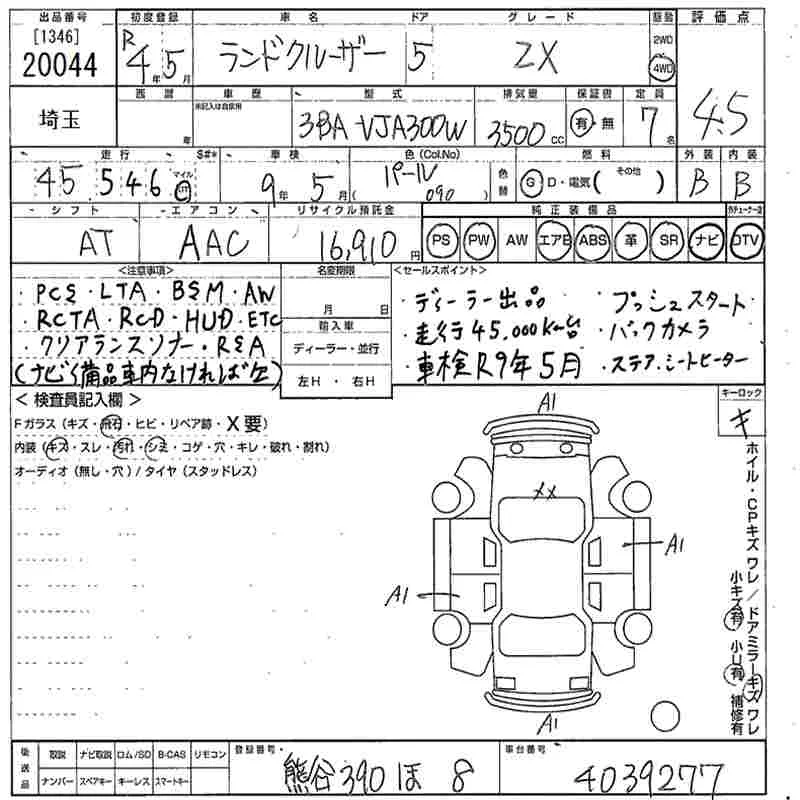 出品番号 初度登録 車名 ドア グレード 駆動 評価点
[1346]
20044
R 4年 5月 ランドクルーザー 5 ZX 2WD 4WD 4.5
埼玉 西暦 車歴 型式 排気量 保証書 定員
年 未記入は自家用 3BA-VJA300W 3500cc 有・無 7名
走行 S#* 車検 色(Col.No) 燃料 外装 内装
45,546 マイル km 9年 5月 パール (090) 色替 G D・電気( その他 ) B B
シフト エアコン リサイクル預託金 純正装備品
AT AAC 16,910円 PS PW AW エアB ABS 革 SR ナビ DTV
<注意事項> 名変期限 <セールスポイント>
・PCS・LTA・BSM・AW
・RCTA・RCD・HUD・ETC
・クリアランスソナー・RSA
(ナビ備品車内なければ欠)
月 日
輸入車
ディーラー・並行
左H ・ 右H
・ディーラー出品 ・プッシュスタート
・走行45,000km台 ・バックカメラ
・車検R9年5月 ・ステア、シートヒーター
<検査員記入欄> キーロック
キ
Fガラス(キズ・飛石・ヒビ・リペア跡・X要)
内装(キズ・スレ・汚れ・シミ・コゲ・穴・キレ・破れ・割れ)
オーディオ(無し・穴)/タイヤ(スタッドレス)
A1
XX
A1
A1
A1
ホイル・CPキズ ワレ/ドアミラーキズ ワレ
小キズ有 小U有 補修有
後送品 取説 ナビ取説 ロム/SD B-CAS リモコン 登録番号 車台番号
ナンバー スペアキー キーレス スマートキー 熊谷 390 ほ 8 4039277